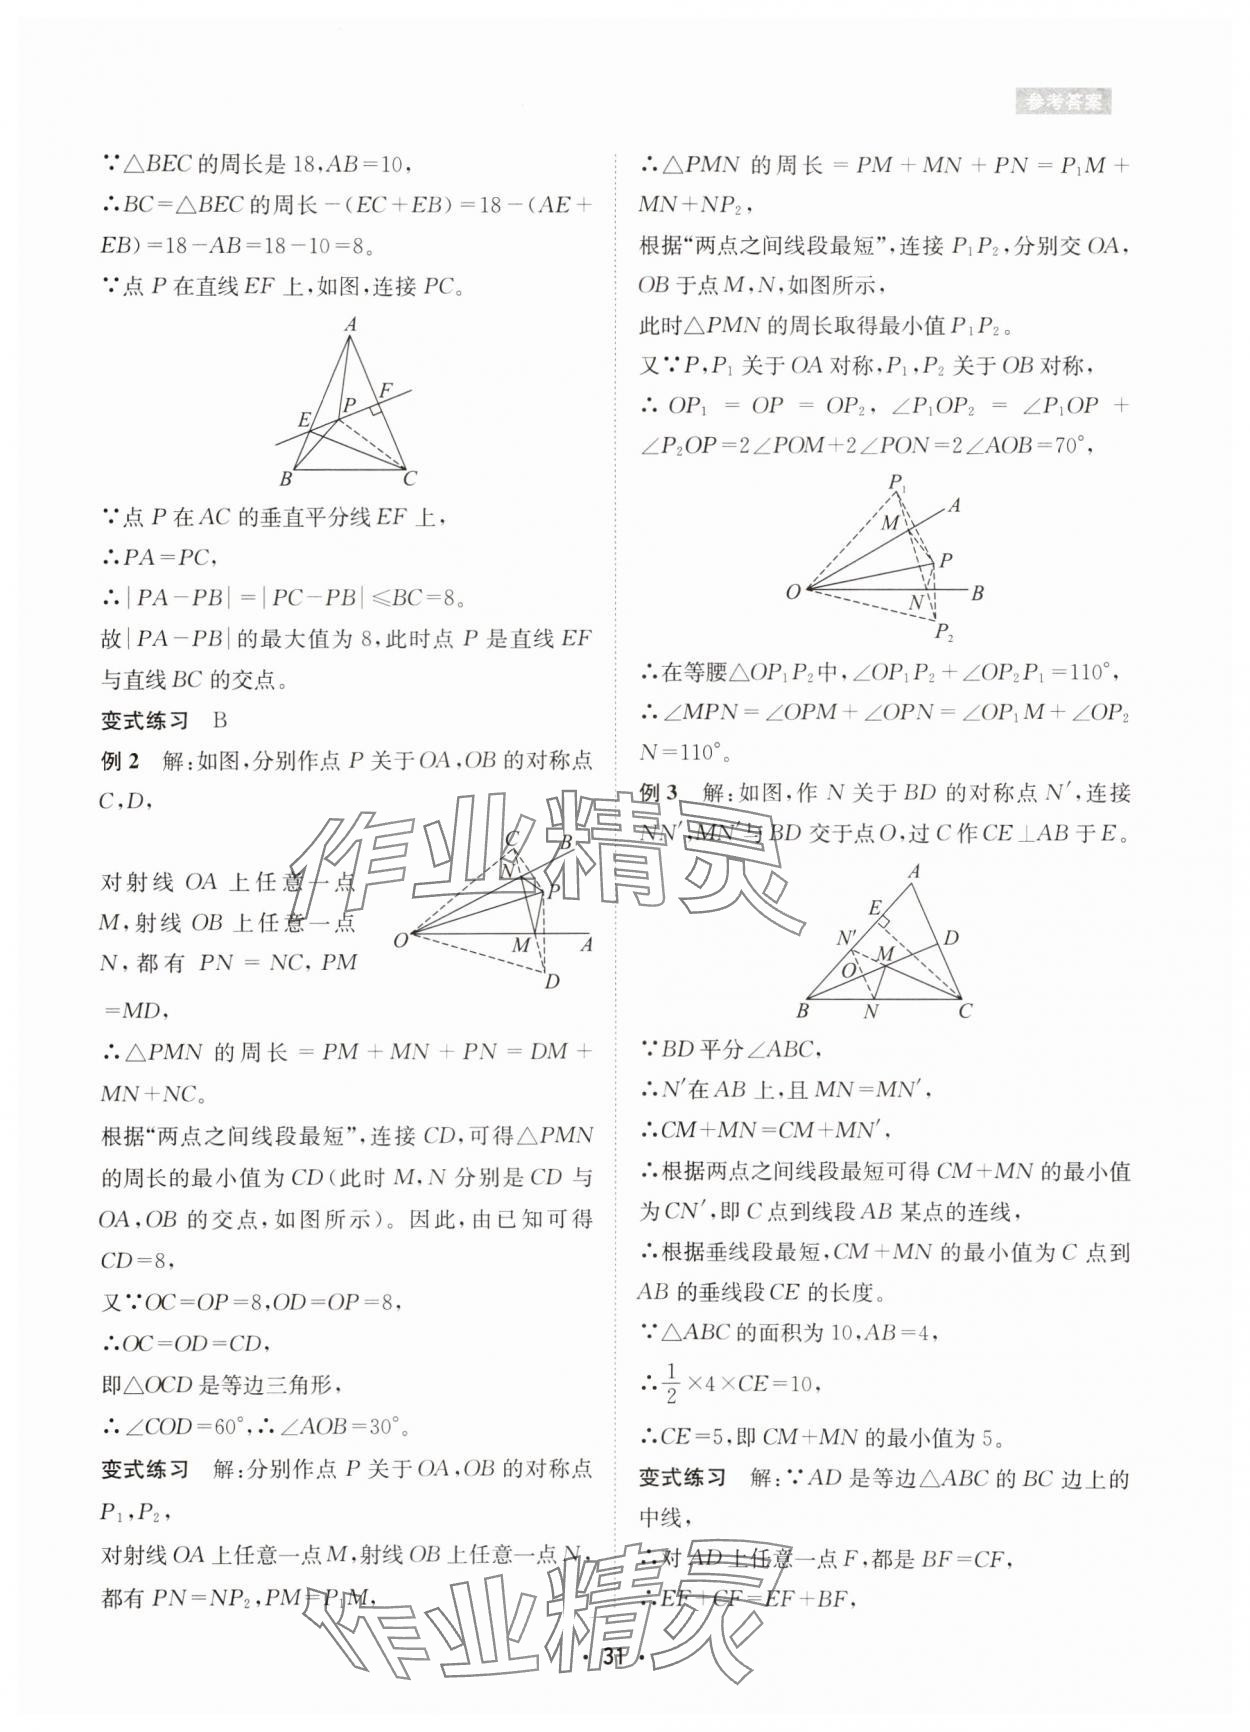 参考答案
∵△BEC的周长是18,AB=10,
∴BC=△BEC的周长-(EC+EB)=18-(AE+
EB)=18-AB=18-10=8。
∵点P在直线EF上,如图,连接PC。
A
F
P
E
B
C
∵点P在AC的垂直平分线EF上,
∴PA=PC,
∴|PA-PB|=|PC-PB|≤BC=8。
故|PA-PB|的最大值为8,此时点P是直线EF
与直线BC的交点。
变式练习 B
例2 解:如图,分别作点P关于OA,OB的对称点
C,D,
对射线OA上任意一点
M,射线OB上任意一点
N,都有PN=NC,PM
=MD,
C
B
N
P
O
M
A
D
∴△PMN的周长=PM+MN+PN=DM+
MN+NC。
根据“两点之间线段最短”,连接CD,可得△PMN
的周长的最小值为CD(此时M,N分别是CD与
OA,OB的交点,如图所示)。因此,由已知可得
CD=8,
又∵OC=OP=8,OD=OP=8,
∴OC=OD=CD,
即△OCD是等边三角形,
∴∠COD=60°,∴∠AOB=30°。
变式练习 解:分别作点P关于OA,OB的对称点
P₁,P₂,
对射线OA上任意一点M,射线OB上任意一点N,
都有PN=NP₂,PM=P₁M,
∴△PMN的周长=PM+MN+PN=P₁M+
MN+NP₂,
根据“两点之间线段最短”,连接P₁P₂,分别交OA,
OB于点M,N,如图所示,
此时△PMN的周长取得最小值P₁P₂。
又∵P,P₁关于OA对称,P₁,P₂关于OB对称,
∴OP₁=OP=OP₂,∠P₁OP₂=∠P₁OP+
∠P₂OP=2∠POM+2∠PON=2∠AOB=70°,
P₁
A
M
P
O
N
B
P₂
∴在等腰△OP₁P₂中,∠OP₁P₂+∠OP₂P₁=110°,
∴∠MPN=∠OPM+∠OPN=∠OP₁M+∠OP₂
N=110°。
例3 解:如图,作N关于BD的对称点N′,连接
NN′,MN′与BD交于点O,过C作CE⊥AB于E。
A
E
N′
M
D
O
B
N
C
∵BD平分∠ABC,
∴N′在AB上,且MN=MN′,
∴CM+MN=CM+MN′,
∴根据两点之间线段最短可得CM+MN的最小值
为CN′,即C点到线段AB某点的连线,
∴根据垂线段最短,CM+MN的最小值为C点到
AB的垂线段CE的长度。
∵△ABC的面积为10,AB=4,
∴1/2×4×CE=10,
∴CE=5,即CM+MN的最小值为5。
变式练习 解:∵AD是等边△ABC的BC边上的
中线,
∴对AD上任意一点F,都是BF=CF,
∴EF+CF=EF+BF,
作业精灵
作业精灵
·31·